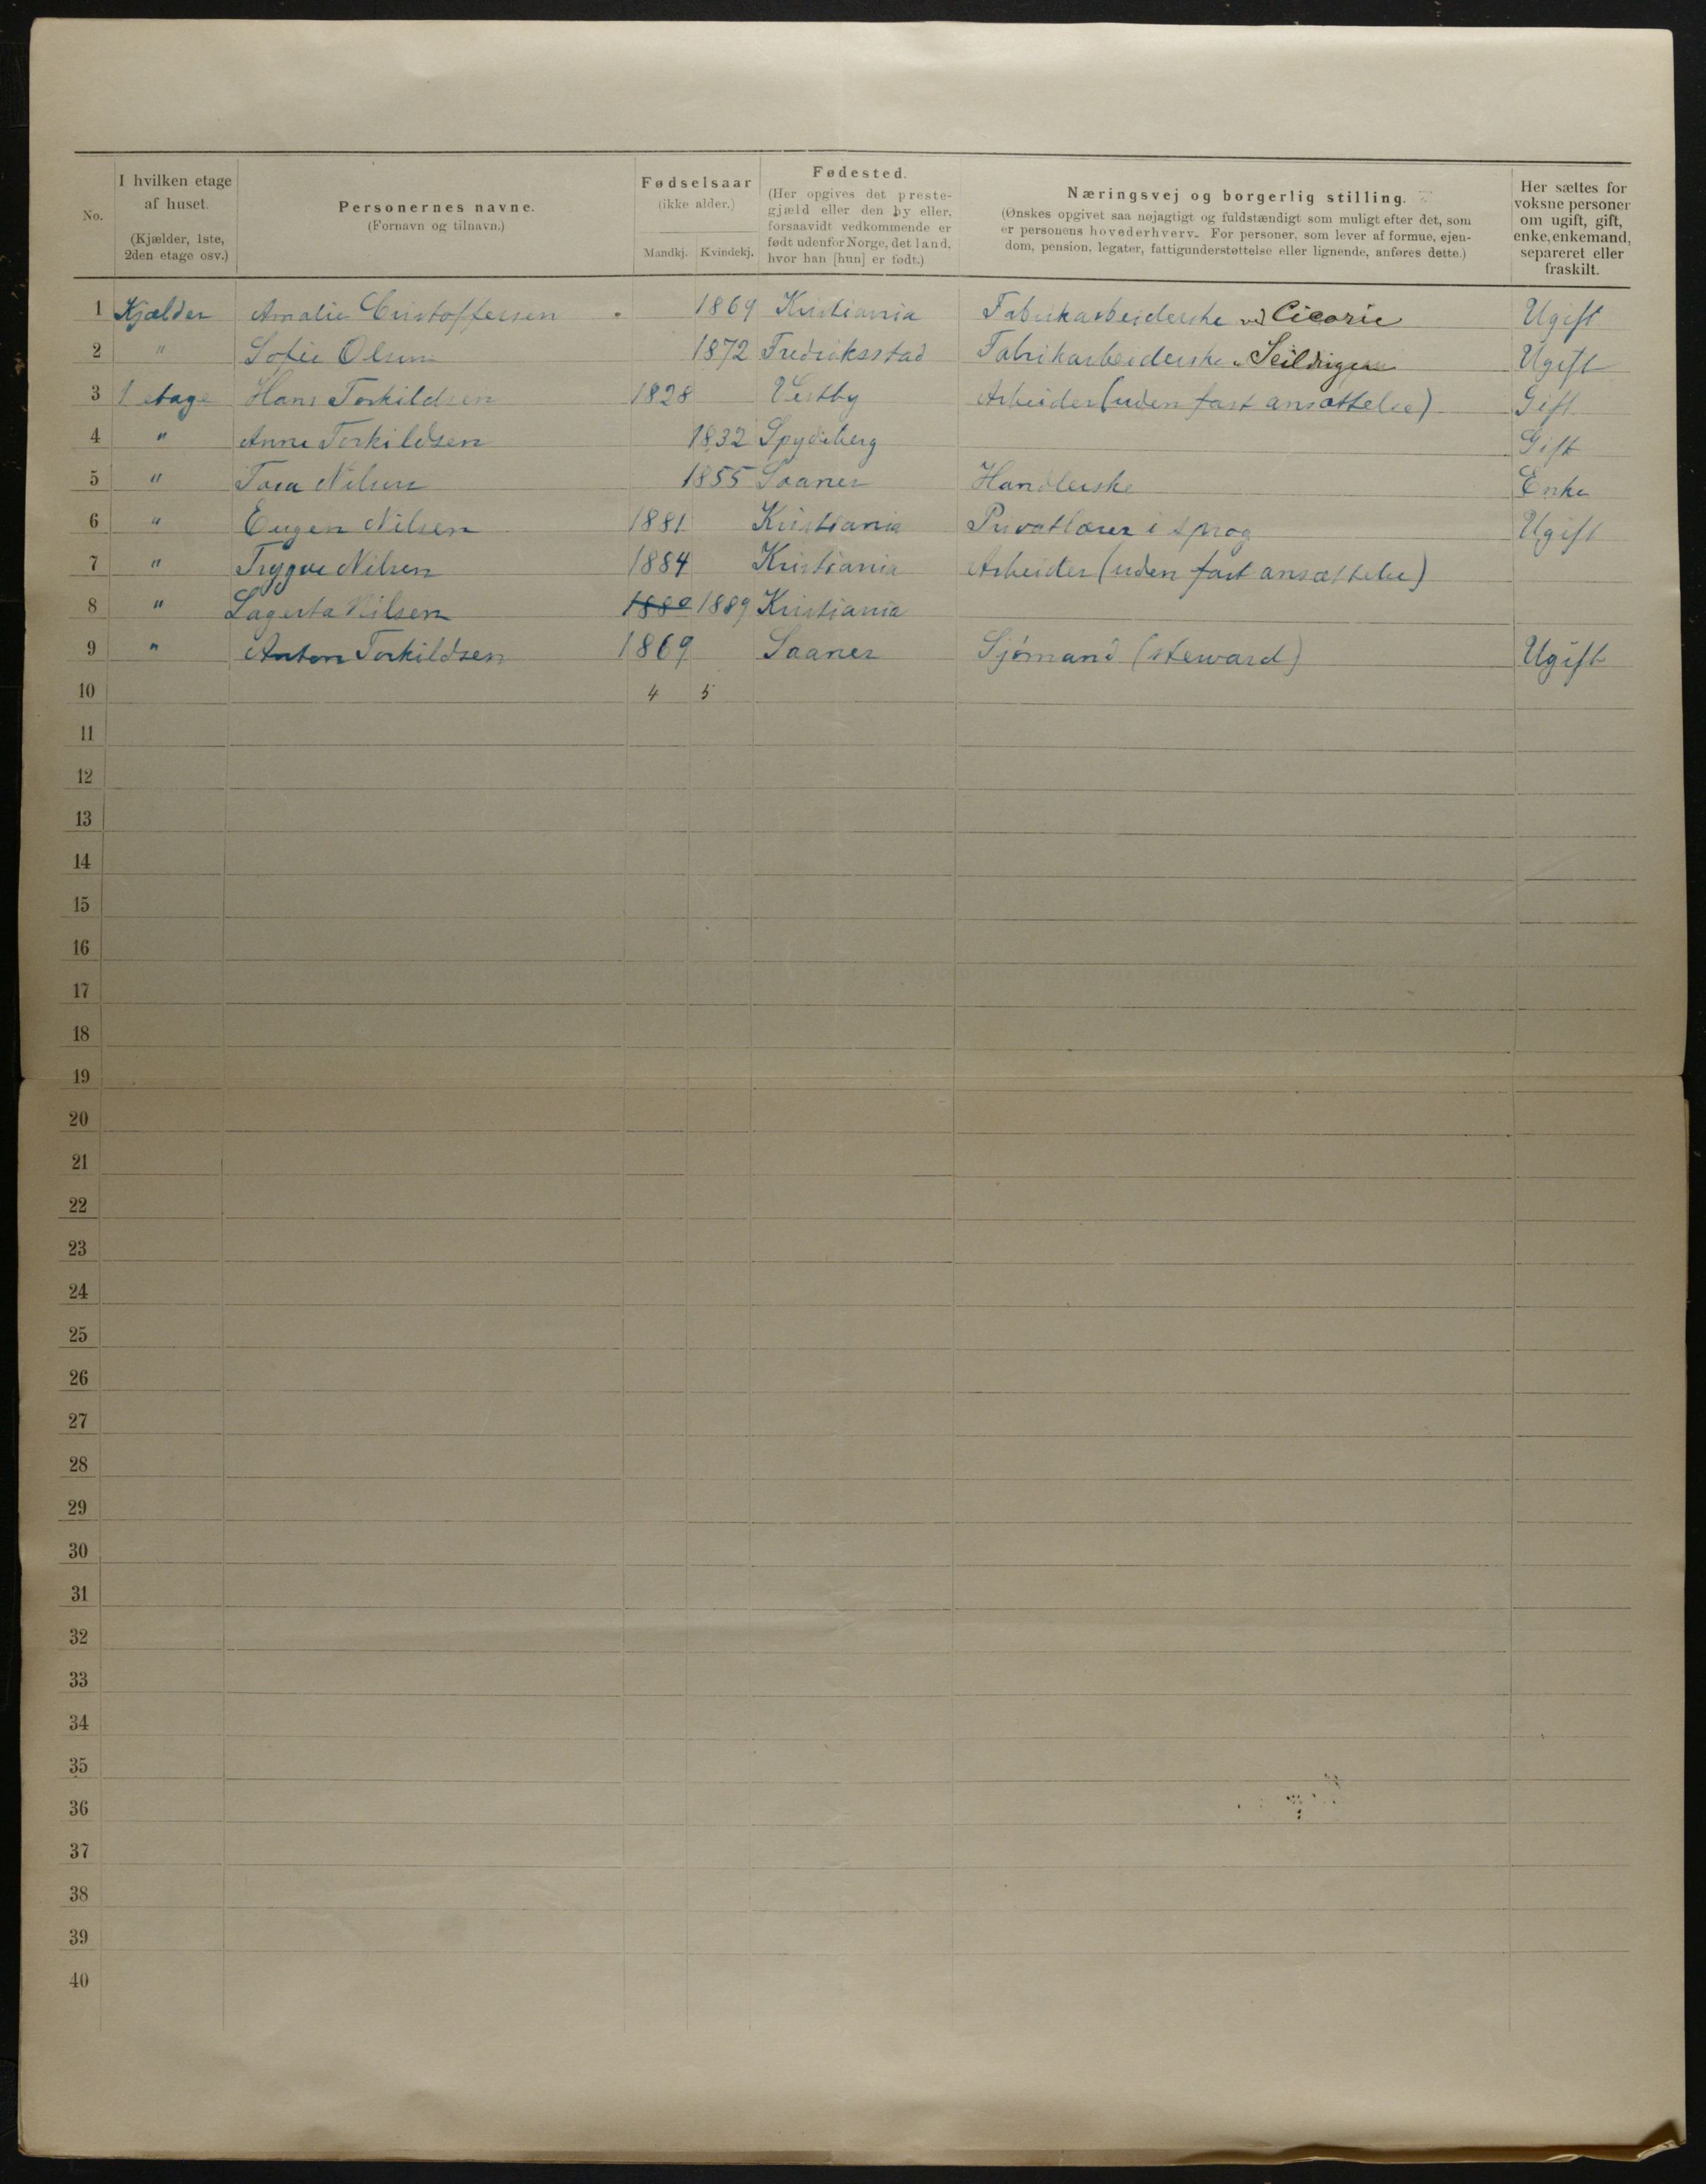 No.
I hvilken etage af huset. (Kjælder, 1ste, 2den etage osv.)
Personernes navne. (Fornavn og tilnavn.)
Fødselsaar (ikke alder.) Mandkj. Kvindekj.
Fødested. (Her opgives det prestegjæld eller den by eller, forsaavidt vedkommende er født udenfor Norge, det land, hvor han [hun] er født.)
Næringsvej og borgerlig stilling. (Ønskes opgivet saa nøjagtigt og fuldstændigt som muligt efter det, som er personens hovederhverv. For personer, som lever af formue, ejendom, pension, legater, fattigunderstøttelse eller lignende, anføres dette.)
Her sættes for voksne personer om ugift, gift, enke, enkemand, separeret eller fraskilt.
1 Kjælder Amalie Cristoffersen 1869 Kristiania Fabrikarbeiderske ved Cicorie Ugift
2 " Sofie Olsen 1872 Fredriksstad Fabrikarbeiderske " Ugift
3 1 etage Hans Torkildsen 1828 Vestby Arbeider (uden fast ansættelse) Gift
4 " Anne Torkildsen 1832 Spydeberg Gift
5 " Tora Nilsen 1855 Saaner Handlerske Enke
6 " Eugen Nilsen 1881 Kristiania Privatlærer i sprog Ugift
7 " Trygve Nilsen 1884 Kristiania Arbeider (uden fast ansættelse)
8 " Lagerta Nilsen 1880 1889 Kristiania
9 " Anton Torkildsen 1869 Saaner Sjømand (steward) Ugift
10 4 5
11
12
13
14
15
16
17
18
19
20
21
22
23
24
25
26
27
28
29
30
31
32
33
34
35
36
37
38
39
40